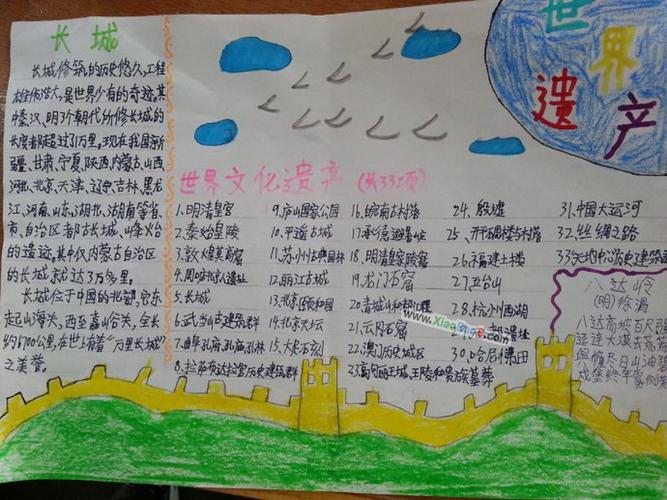 长城
长城修筑的历史悠久,工程
雄伟浩大,是世界少有的奇迹,其
中秦汉、明3个朝代所修长城的
长度都超过了1万里。现在我国新
疆、甘肃、宁夏、陕西、内蒙古、山西
河北、北京、天津、辽宁、吉林、黑龙
江、河南、山东、湖北、湖南等省
市、自治区都有古长城、烽火台
的遗迹,其中仅内蒙古自治区
的长城就达3万多里。
长城位于中国的北部,它东
起山海关,西至嘉峪关,全长
约6700公里,在世上有着“万里长城”
之美誉。
世界遗产
世界文化遗产(共33项)
1.明清皇宫
2.秦始皇陵
3.敦煌莫高窟
4.周口店北京人遗址
5.长城
6.武当山古建筑群
7.曲阜孔府,孔庙,孔林
8.拉萨布达拉宫历史建筑群
9.庐山国家公园
10.平遥古城
11.苏州古典园林
12.丽江古城
13.北京颐和园
14.北京天坛
15.大足石刻
16.皖南古村落
17.承德避暑山庄
18.明清皇家陵寝
19.龙门石窟
20.青城山和都江堰
21.云冈石窟
22.澳门历史城区
23.高句丽王城、王陵和贵族墓葬
24.殷墟
25.开平碉楼与村落
26.福建土楼
27.五台山
28.杭州西湖
都遗址
30.哈尼梯田
31.中国大运河
32.丝绸之路
33.天地中心历史建筑
www.Xiaq
八达岭
(明)徐渭
八达高坡百尺
径连大漠去